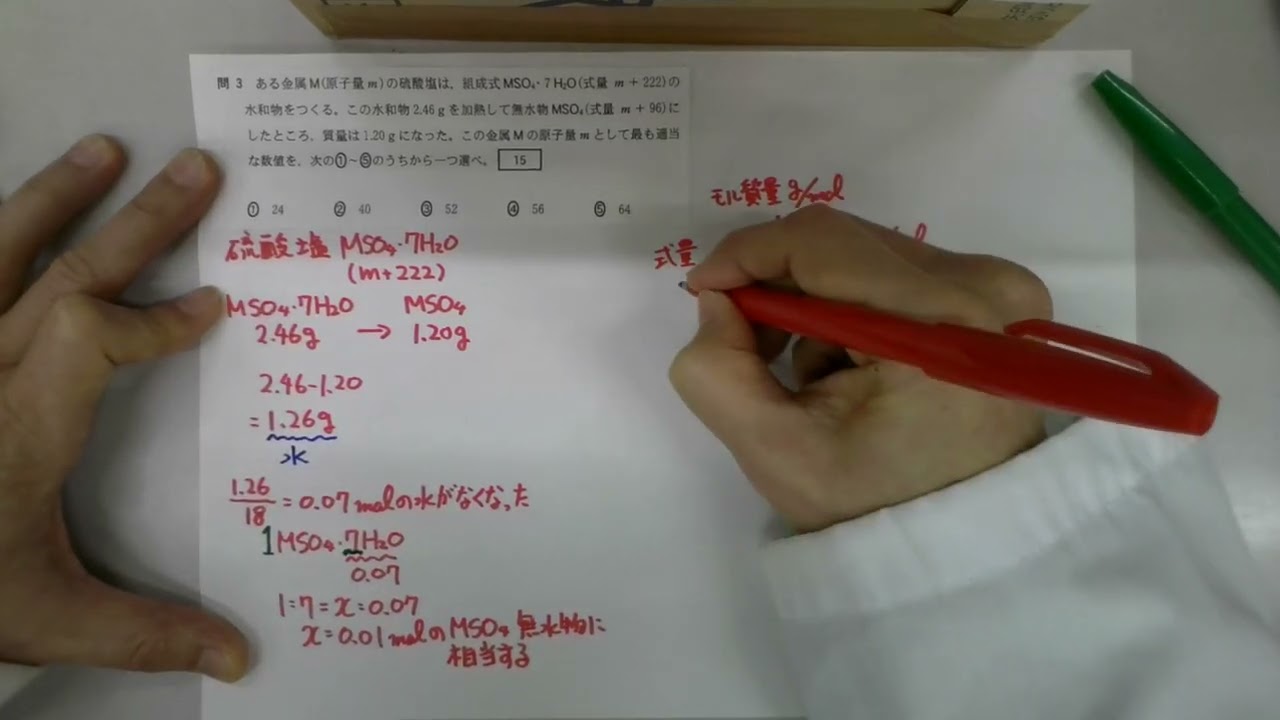 問 3 ある金属M(原子量 m)の硫酸塩は、組成式MSO₄・7H₂O(式量 m + 222)の
水和物をつくる。この水和物 2.46 g を加熱して無水物 MSO₄(式量 m + 96)に
したところ、質量は 1.20 g になった。この金属 M の原子量 m として最も適当
な数値を、次の①~⑤のうちから一つ選べ。 15
① 24 ② 40 ③ 52 ④ 56 ⑤ 64
硫酸塩 MSO₄・7H₂O
(m+222)
MSO₄・7H₂O MSO₄
2.46g → 1.20g
2.46-1.20
= 1.26g
水
1.26/18 = 0.07molの水がなくなった
1MSO₄・7H₂O
0.07
1=7=x=0.07
x=0.01molのMSO₄ 無水物に
相当する
モル質量 g/mol
式量